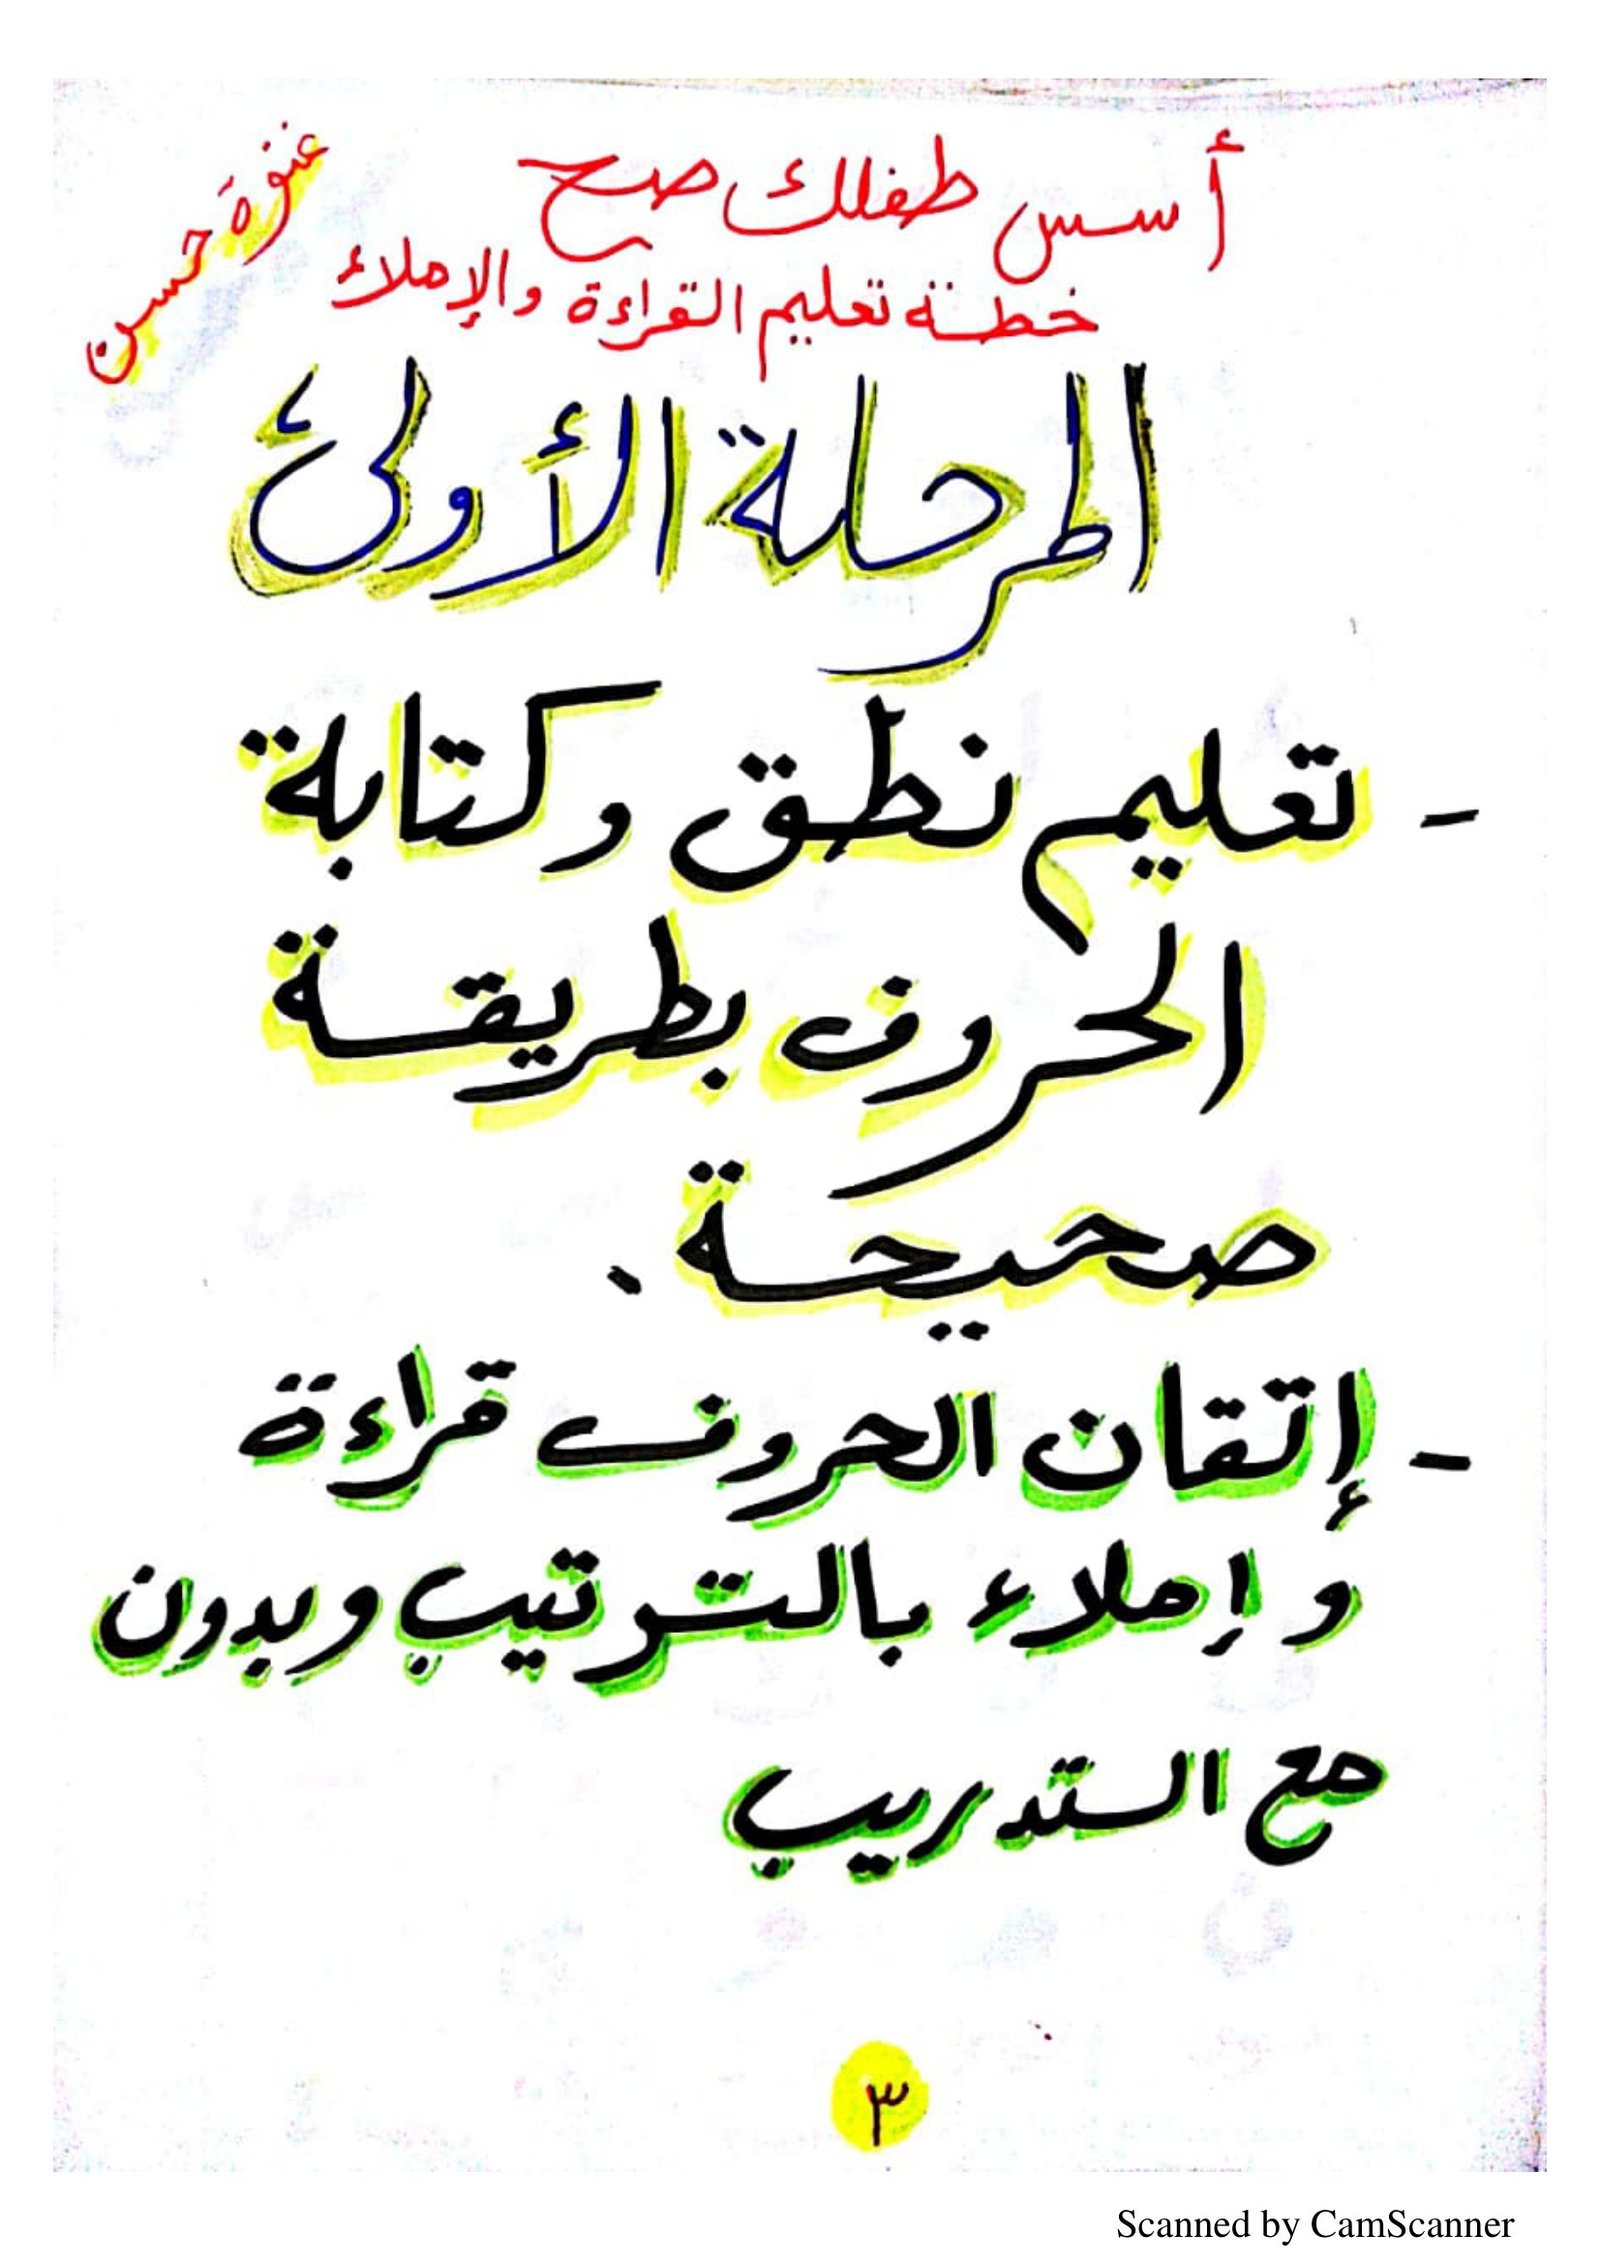 أسس طفلك صح
خطة تعليم القراءة والإملاء
عنوة حسن
المرحلة الأولى
- تعليم نطق وكتابة
الحروف بطريقة
صحيحة .
- إتقان الحروف قراءة
وإملاء بالترتيب وبدون
مع التدريب
٣
Scanned by CamScanner